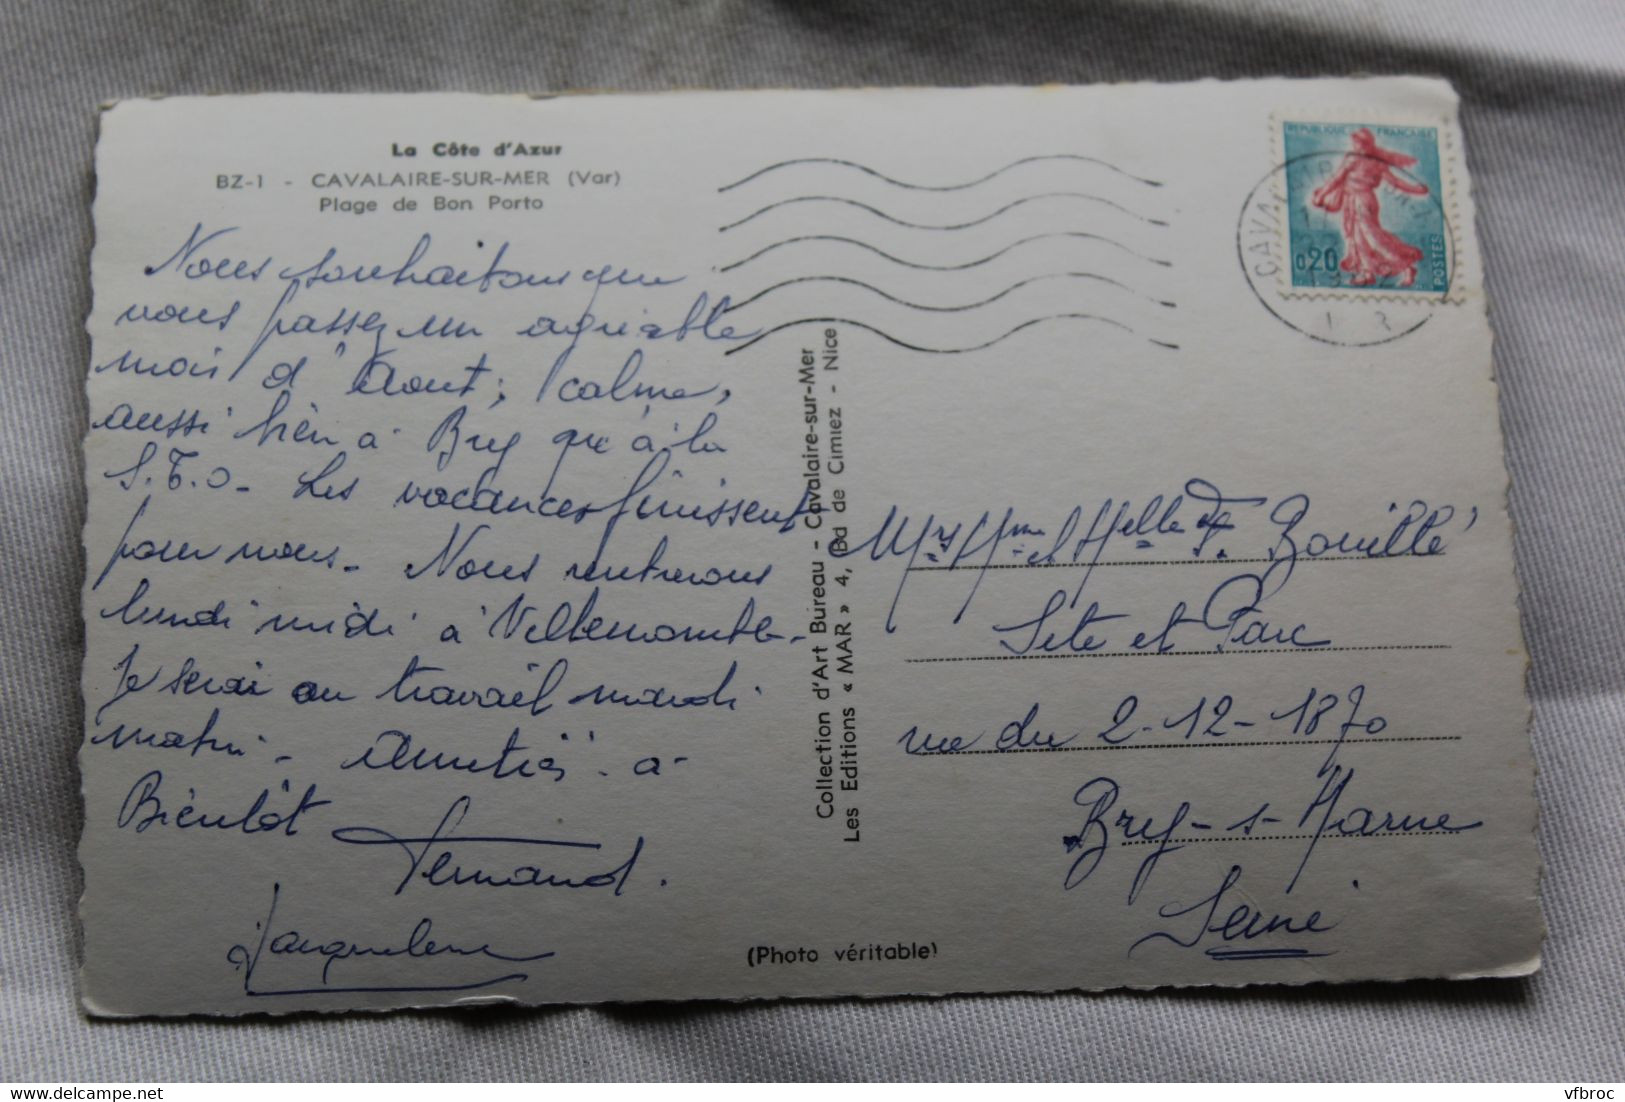 La Côte d'Azur
BZ-1 - CAVALAIRE-SUR-MER (Var)
Plage de Bon Porto
Nous souhaitons que
vous passez un agréable
mois d'Aout, calme,
aussi bien à Bry qu'à la
S.T.O- Les vacances finissent
pour nous. Nous rentrerons
lundi midi à Villemomble-
Je serai au travail mardi
matin - Amitiés - à
Bientôt Fernand.
Jacqueline
Collection d'Art Bureau - Cavalaire-sur-Mer
Les Editions « MAR » 4, Bd de Cimiez - Nice
(Photo véritable)
REPUBLIQUE FRANÇAISE
0,20
POSTES
CAVALAIRE
Mrs Mme et Melle F. Bouillé
Site et Parc
rue du 2-12-1870
Bry-s-Marne
Seine
vfbroc